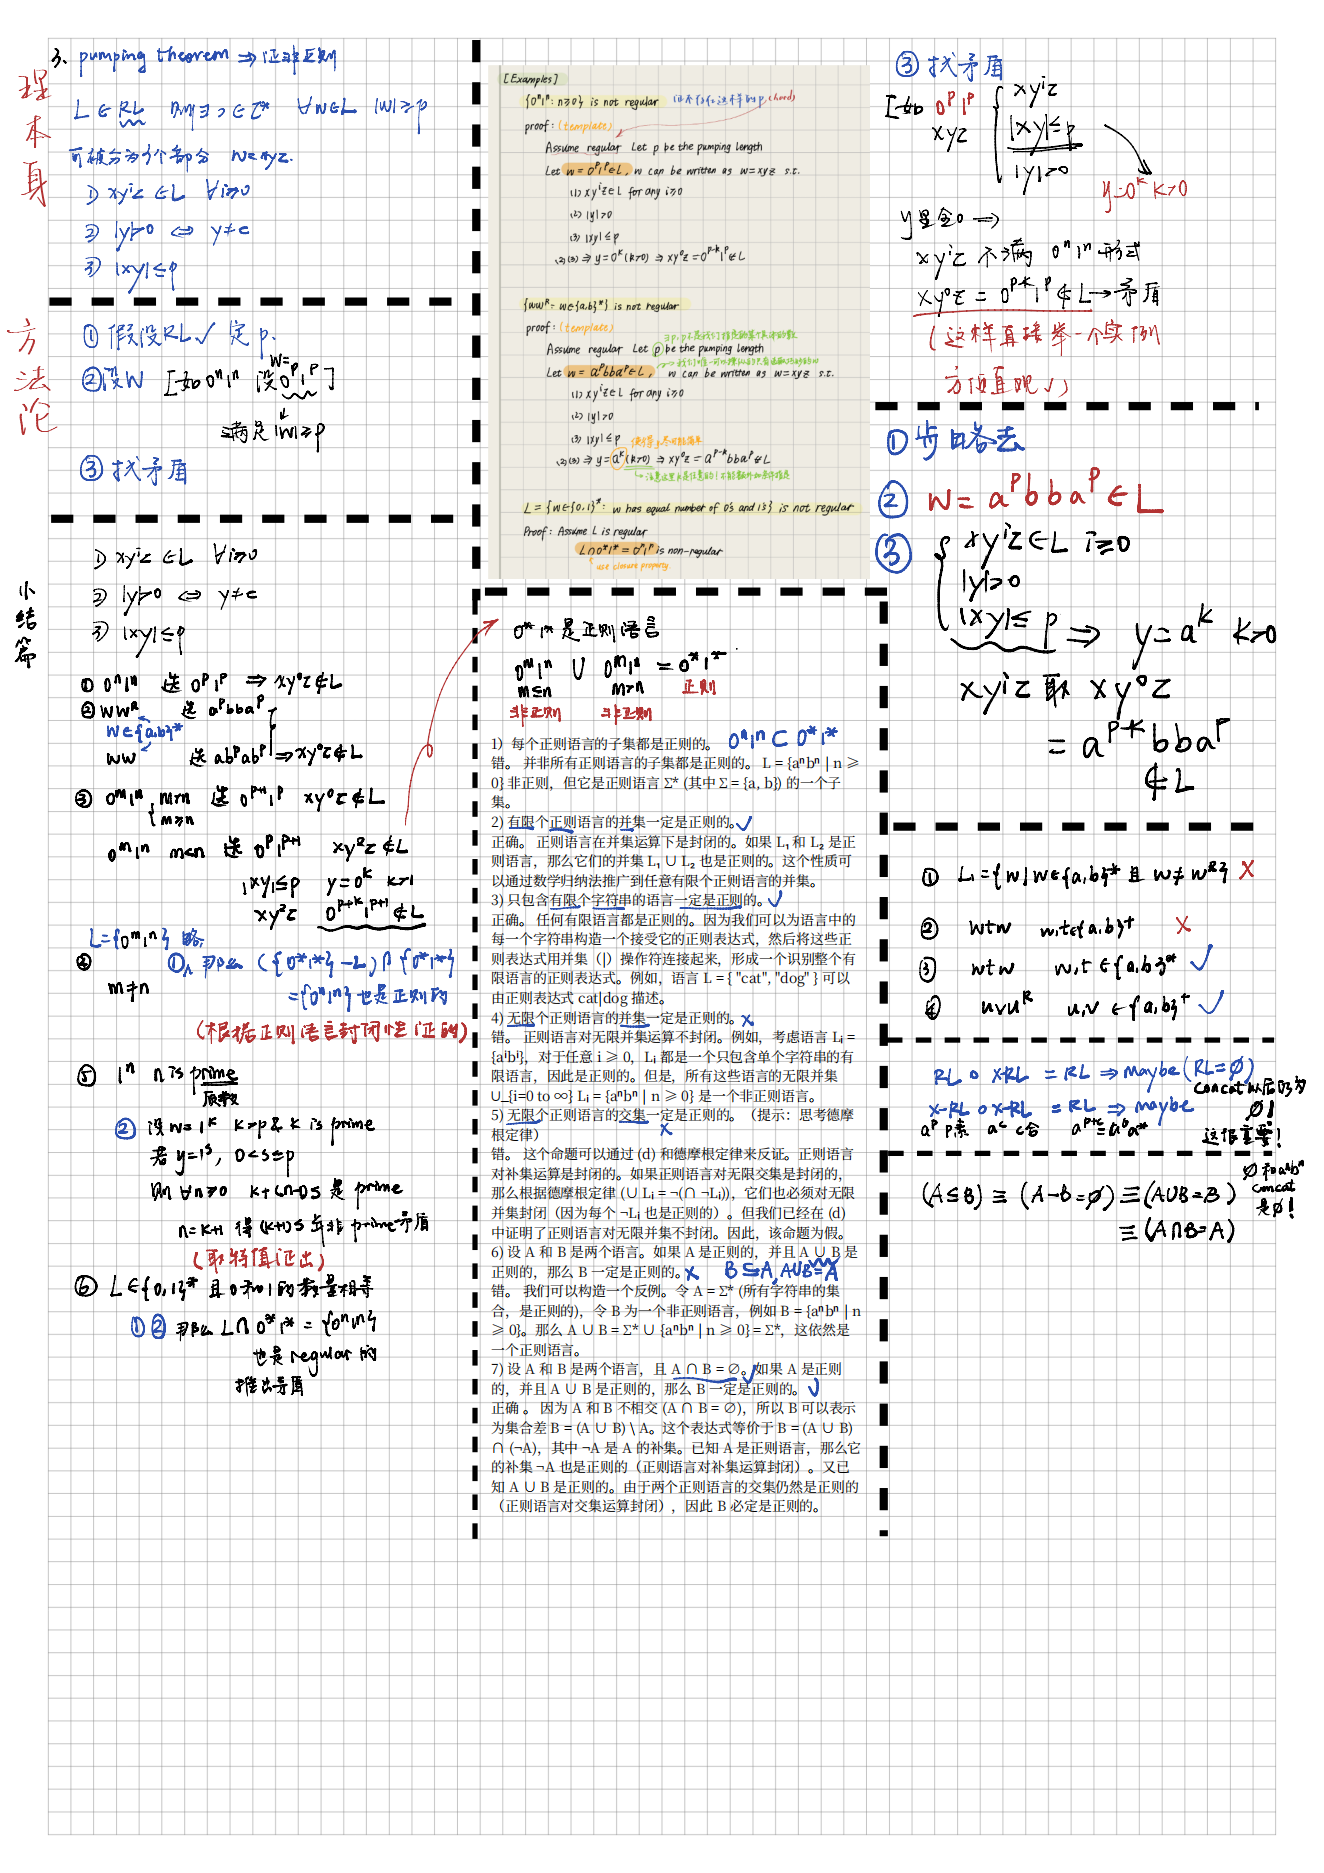 3. pumping theorem ⇒ 证非正则
理本身
L ∈ RL 则 ∃ ∈ Z* ∀w∈L |w|≥p
可被分为3个部分 w=xyz.
1) xyⁱz ∈ L ∀i≥0
2) |y|>0 ⇔ y≠e
3) |xy|≤p
方法论
① 假设RL✓ 定p.
②设W [如0ⁿ1ⁿ 设 w=0ᵖ1ᵖ]
满足|w|≥p
③ 找矛盾
小结篇
1) xyⁱz ∈ L ∀i≥0
2) |y|>0 ⇔ y≠e
3) |xy|≤p
① 0ⁿ1ⁿ 选 0ᵖ1ᵖ ⇒ xy⁰z∉L
② wwᴿ 选 aᵖbbaᵖ
w∈{a,b}*
ww 选 abᵖabᵖ ⇒xy⁰z∉L
③ 0ᵐ1ⁿ m>n 选 0ᵖ⁺¹1ᵖ xy⁰z∉L
m≥n
0ᵐ1ⁿ m<n 选 0ᵖ1ᵖ⁺¹ xy²z∉L
|xy|≤p y=0ᵏ k≥1
xy²z 0ᵖ⁺ᵏ1ᵖ⁺¹∉L
L={0ᵐ1ⁿ} 略
④ ① 那么 ({0*1*}-L)∩{0*1*}
m≠n ={0ⁿ1ⁿ}也是正则的
(根据正则语言封闭性证明)
⑤ 1ⁿ n is prime
质数
② 设w=1ᵏ k>p & k is prime
若 y=1ˢ, 0<s≤p
则 ∀n≥0 k+(n-1)s 是 prime
n=k+1 得(k+1)s 与非prime矛盾
(取特值证出)
⑥ L∈{0,1}* 且0和1的数量相等
①② 那么 L∩0*1* = {0ⁿ1ⁿ}
也是 regular 的
推出矛盾
[Examples]
{0ⁿ1ⁿ: n≥0} is not regular 证不存在这样的p (hard)
proof: (template)
Assume regular Let p be the pumping length
Let w = 0ᵖ1ᵖ∈L, w can be written as w=xyz s.t.
(1) xyⁱz∈L for any i≥0
(2) |y|>0
(3) |xy|≤p
(2)(3) ⇒ y=0ᵏ(k>0) ⇒ xy⁰z=0ᵖ⁻ᵏ1ᵖ∉L
{wwᴿ: w∈{a,b}*} is not regular
proof: (template)
Assume regular Let p be the pumping length
Let w = aᵖbbaᵖ∈L, w can be written as w=xyz s.t.
(1) xyⁱz∈L for any i≥0
(2) |y|>0
(3) |xy|≤p 使得y尽可能简单
(2)(3) ⇒ y=aᵏ(k>0) ⇒ xy⁰z = aᵖ⁻ᵏbbaᵖ∉L
L = {w∈{0,1}*: w has equal number of 0's and 1's} is not regular
Proof: Assume L is regular
L∩0*1* = 0ⁿ1ⁿ is non-regular
use closure property
0*1*是正则语言
0ᵐ1ⁿ ∪ 0ᵐ1ⁿ = 0*1*
m≤n m>n 正则
非正则 非正则
1) 每个正则语言的子集都是正则的。 0ⁿ1ⁿ ⊂ 0*1*
错。 并非所有正则语言的子集都是正则的。 L = {aⁿbⁿ | n ⩾
0} 非正则，但它是正则语言 Σ* (其中 Σ = {a, b}) 的一个子
集。
2) 有限个正则语言的并集一定是正则的。✓
正确。 正则语言在并集运算下是封闭的。如果 L₁ 和 L₂ 是正
则语言，那么它们的并集 L₁ ∪ L₂ 也是正则的。这个性质可
以通过数学归纳法推广到任意有限个正则语言的并集。
3) 只包含有限个字符串的语言一定是正则的。✓
正确。 任何有限语言都是正则的。因为我们可以为语言中的
每一个字符串构造一个接受它的正则表达式，然后将这些正
则表达式用并集（|）操作符连接起来，形成一个识别整个有
限语言的正则表达式。例如，语言 L = { "cat", "dog" } 可以
由正则表达式 cat|dog 描述。
4) 无限个正则语言的并集一定是正则的。✗
错。 正则语言对无限并集运算不封闭。例如，考虑语言 Lᵢ =
{aⁱbⁱ}，对于任意 i ⩾ 0，Lᵢ 都是一个只包含单个字符串的有
限语言，因此是正则的。但是，所有这些语言的无限并集
∪_{i=0 to ∞} Lᵢ = {aⁿbⁿ | n ⩾ 0} 是一个非正则语言。
5) 无限个正则语言的交集一定是正则的。（提示：思考德摩
根定律） ✗
错。 这个命题可以通过 (d) 和德摩根定律来反证。正则语言
对补集运算是封闭的。如果正则语言对无限交集是封闭的，
那么根据德摩根定律 (∪ Lᵢ = ¬(∩ ¬Lᵢ))，它们也必须对无限
并集封闭（因为每个 ¬Lᵢ 也是正则的）。但我们已经在 (d)
中证明了正则语言对无限并集不封闭。因此，该命题为假。
6) 设 A 和 B 是两个语言。如果 A 是正则的，并且 A ∪ B 是
正则的，那么 B 一定是正则的。✗ B⊆A, A∪B=A
错。 我们可以构造一个反例。令 A = Σ* (所有字符串的集
合，是正则的)，令 B 为一个非正则语言，例如 B = {aⁿbⁿ | n
⩾ 0}。那么 A ∪ B = Σ* ∪ {aⁿbⁿ | n ⩾ 0} = Σ*，这依然是
一个正则语言。
7) 设 A 和 B 是两个语言，且 A ∩ B = ∅。✓如果 A 是正则
的，并且 A ∪ B 是正则的，那么 B 一定是正则的。✓
正确 。 因为 A 和 B 不相交 (A ∩ B = ∅)，所以 B 可以表示
为集合差 B = (A ∪ B) \ A。这个表达式等价于 B = (A ∪ B)
∩ (¬A)，其中 ¬A 是 A 的补集。已知 A 是正则语言，那么它
的补集 ¬A 也是正则的（正则语言对补集运算封闭）。又已
知 A ∪ B 是正则的。由于两个正则语言的交集仍然是正则的
（正则语言对交集运算封闭），因此 B 必定是正则的。
③ 找矛盾
[如 0ᵖ1ᵖ xyⁱz
xyz |xy|≤p
|y|>0
y=0ᵏ k>0
y是全0 ⇒
xyⁱz 不满 0ⁿ1ⁿ 形式
xy⁰z = 0ᵖ⁻ᵏ1ᵖ∉L→矛盾
(这样直接举一个实例
方便直观✓)
① 步略去
② w = aᵖbbaᵖ∈L
③ xyⁱz∈L i≥0
|y|>0
|xy|≤p ⇒ y=aᵏ k>0
xyⁱz 取 xy⁰z
= aᵖ⁻ᵏbbaᵖ
∉L
① L₁={w|w∈{a,b}* 且 w≠wᴿ} ✗
② wtw w,t∈{a,b}⁺ ✗
③ wtw w,t∈{a,b}* ✓
④ uvuᴿ u,v∈{a,b}⁺ ✓
RL ∘ X-RL = RL ⇒ maybe (RL=∅)
concat以后为
∅!
X-RL∘X-RL = RL ⇒ maybe
aᵖ p素 aᶜ c合 aᵖ⁺ᶜ=a⁶a*
这很重要!
∅和aⁿbⁿ
concat
是∅!
(A⊆B) ≡ (A-B=∅) ≡(A∪B=B)
≡(A∩B=A)